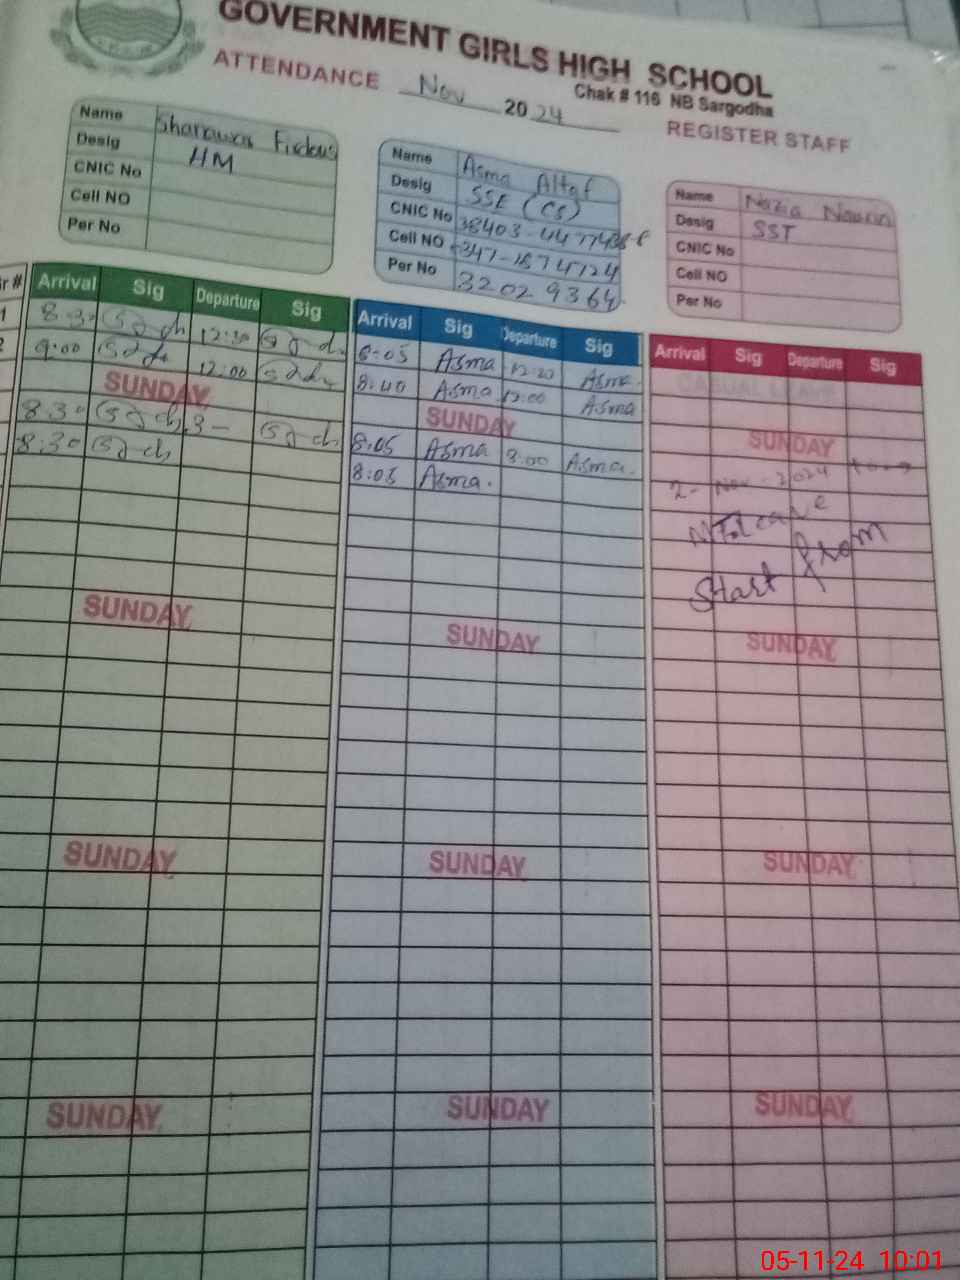 GOVERNMENT GIRLS HIGH SCHOOL
Chak # 116 NB Sargodha
ATTENDANCE Nov 2024 REGISTER STAFF
Name
Desig HM
CNIC No
Cell NO
Per No
Name Asma Altaf
Desig SSE (CS)
CNIC No
Cell NO
Per No 32029364
Name Nazia
Desig SST
CNIC No
Cell NO
Per No
Arrival Sig Departure Sig
8:30 12:30
9:00 12:00
SUNDAY
8:30 3-
8:30
SUNDAY
SUNDAY
SUNDAY
Arrival Sig Departure Sig
8:05 Asma 12:30 Asma
8:40 Asma 12:00 Asma
SUNDAY
8:05 Asma 3:00 Asma.
8:05 Asma.
SUNDAY
SUNDAY
SUNDAY
Arrival Sig Departure Sig
CASUAL LEAVE
SUNDAY
2-Nov-2024
Start from
SUNDAY
SUNDAY
SUNDAY
05-11-24 10:01